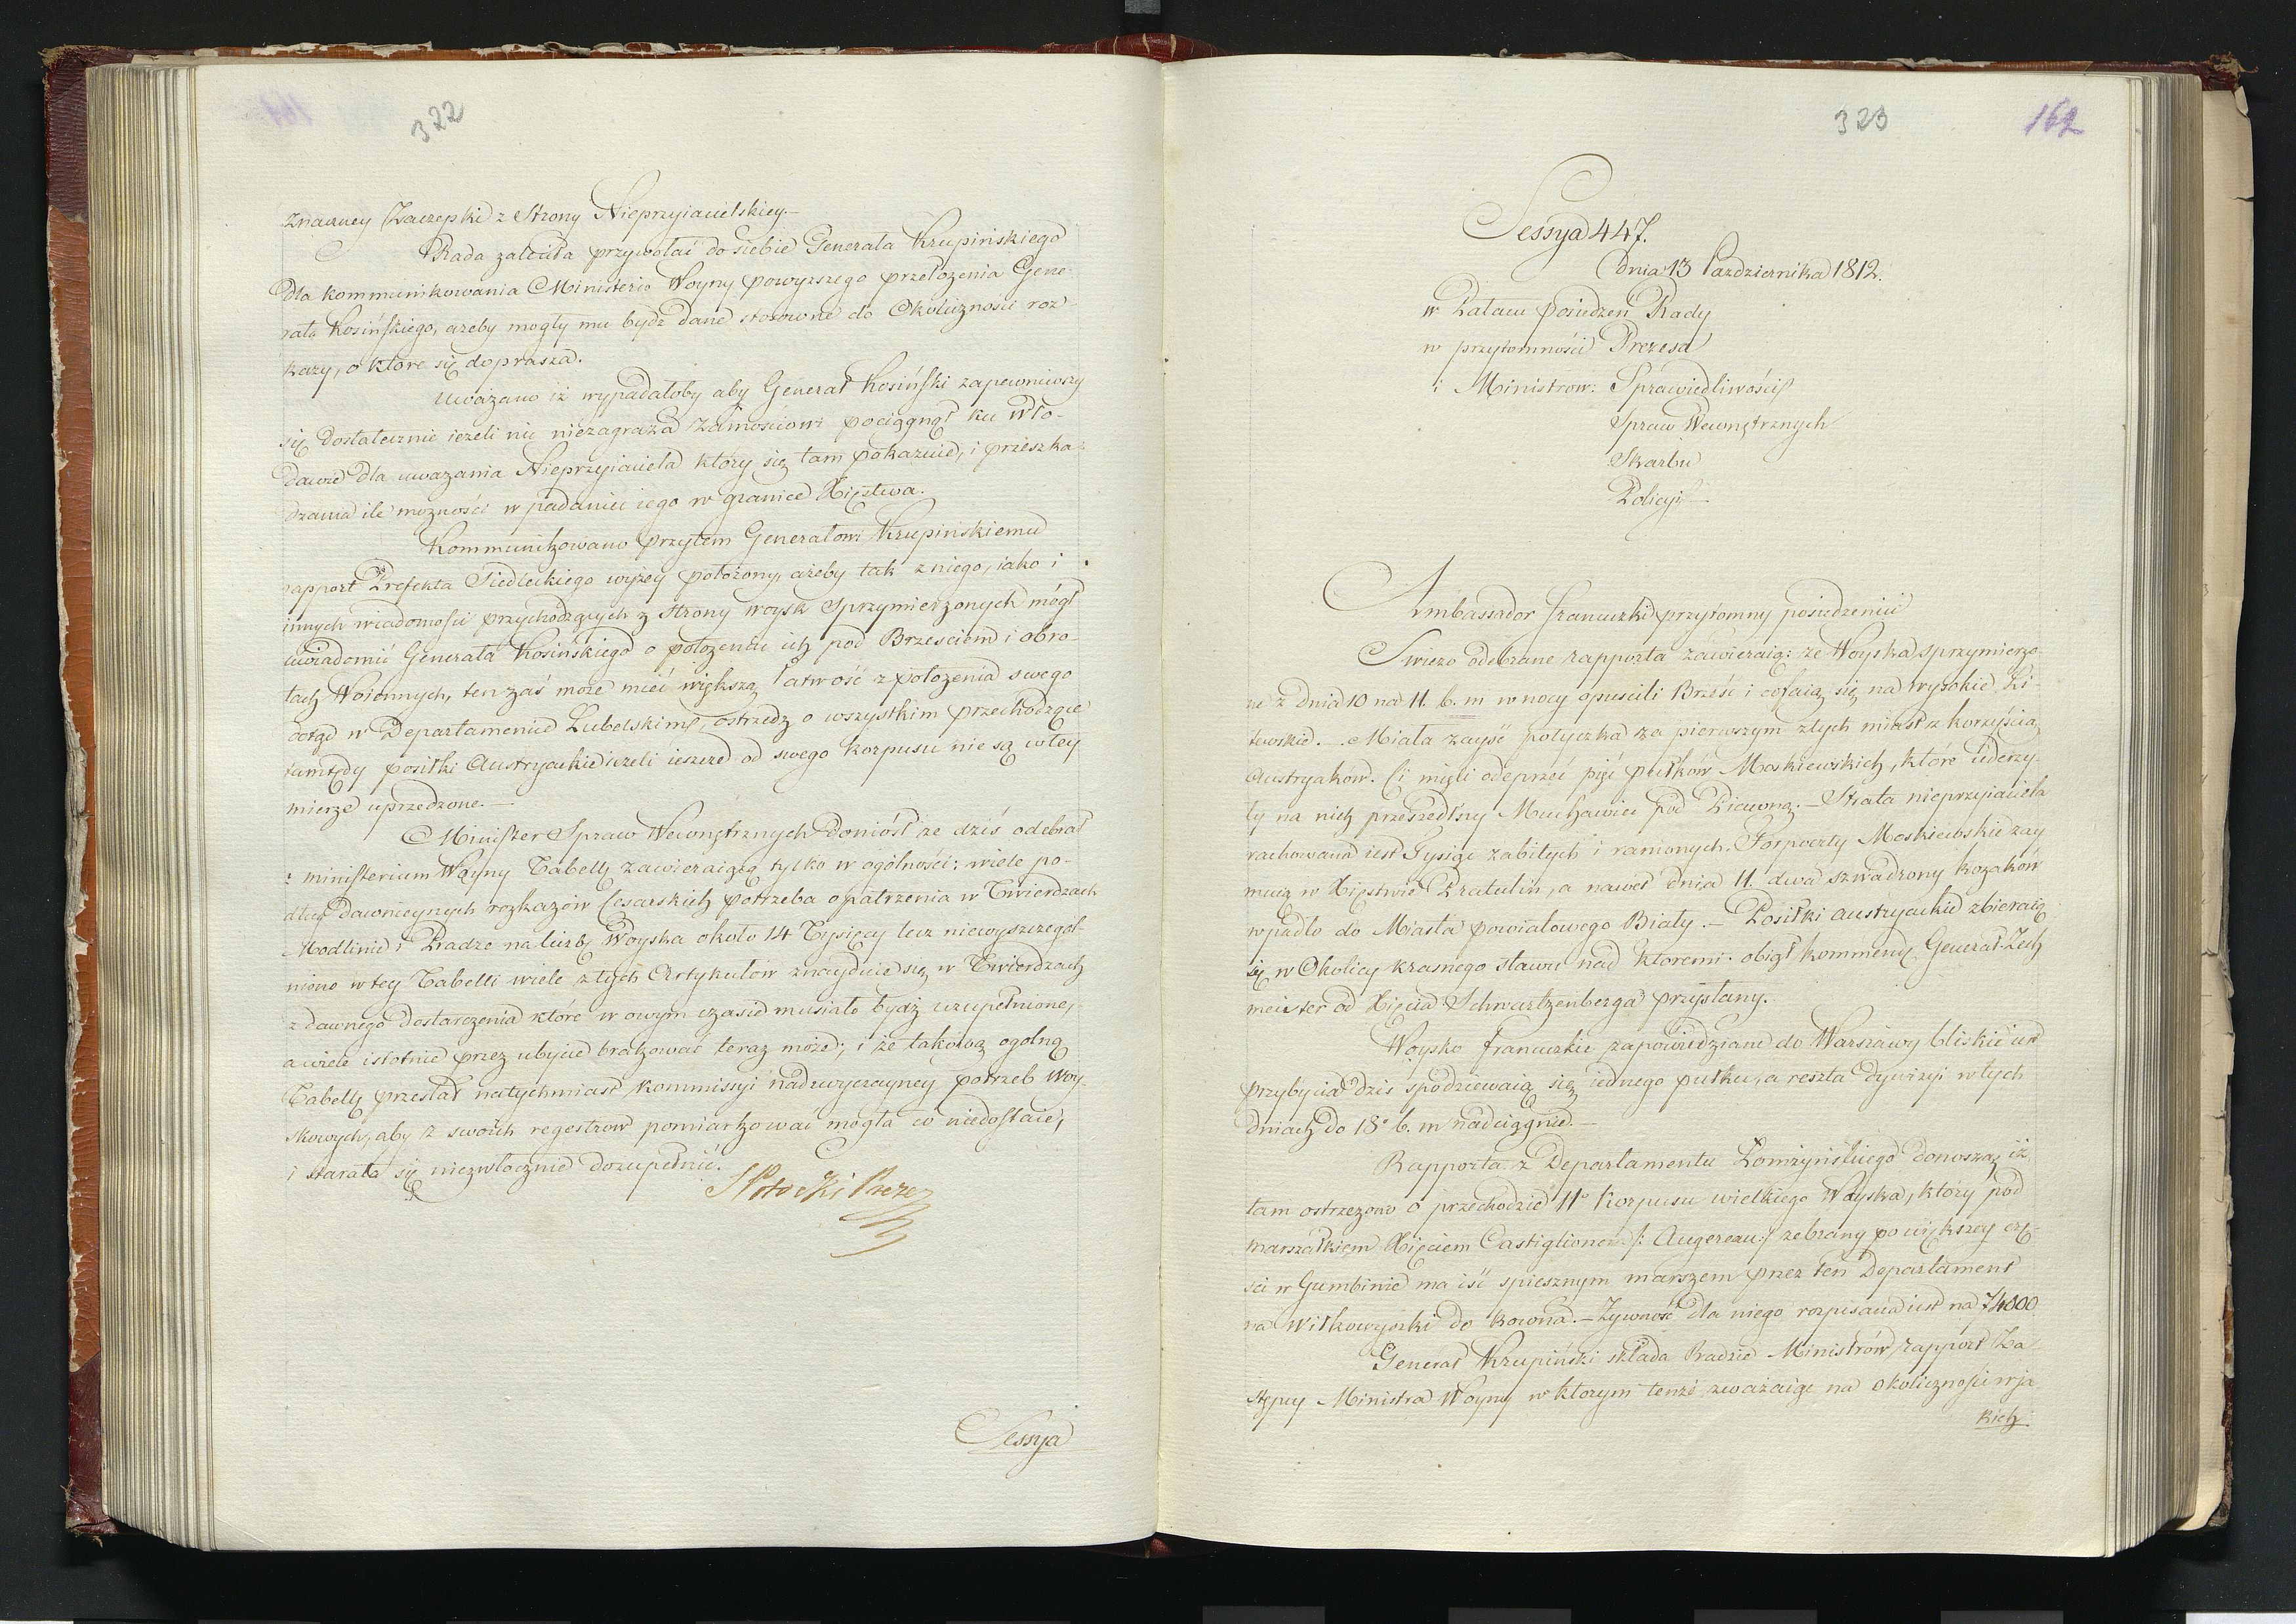 322
znaczney Zaczepki z Strony Nieprzyiacielskiey.—
Rada zaleciła przywołać do siebie Generała Krupińskiego
dla kommunikowania Ministerio Woyny powyższego przełożenia Gene-
rała Kosińskiego, ażeby mogły mu bydź dane stosowne do Okoliczności roz-
kazy, o które się doprasza.
Uważano iż wypadałoby aby Generał Kosiński zapewniwszy
się dostatecznie ieżeli nic niezagraża Zamościowi pociągnął ku Wło-
dawie dla uważania Nieprzyiaciela który się tam pokazuie, i przeszka-
dzania ile możności wpadaniu iego w granice Xięstwa.
Kommunikowano przytem Generałowi Krupińskiemu
rapport Prefekta Siedleckiego wyżey położony, ażeby tak z niego, iako i
innych wiadomości przychodzących z strony woysk Sprzymierzonych mógł
uwiadomić Generała Kosińskiego o położeniu ich pod Brześciem i obro-
tach Woiennych, ten zaś może mieć większą łatwość z położenia swego
dotąd w Departamencie Lubelskim, ostrzedz o wszystkim przechodzące
tamtędy posiłki Austryackie ieżeli ieszcze od swego korpusu nie są w tey
mierze uprzedzone.—
Minister Spraw Wewnętrznych doniósł że dziś odebrał
z ministerium Woyny Tabellę zawieraiącą tylko w ogólności: wiele po-
dług dawnieyszych rozkazów Cesarskich potrzeba opatrzenia w Twierdzach
Modlinie i Pradze na liczbę Woyska około 14 Tysięcy lecz niewyszczegól-
niono w tey Tabelli wiele z tych Artykułów znayduie się w Twierdzach
z dawnego dostarczenia które w owym czasie musiało bydź uzupełnione,
a wiele istotnie przez ubycie brakować teraz może; i że takową ogolną
Tabellę przesłał natychmiast Kommissyi nadzwyczayney potrzeb Woy-
skowych, aby z swoich regestrów pomiarkować mogła co niedostaie,
i starała się niezwłocznie dozupełnić.
S Potocki Prezes
Sessya
323
162
Sessya 447.
Dnia 13 Października 1812.
w Pałacu posiedzeń Rady
w przytomności Prezesa
i Ministrow: Sprawiedliwości
Spraw Wewnętrznych
Skarbu
Policyi
Ambassador francuzki przytomny posiedzeniu
Swieżo odebrane rapporta zawieraią: że Woyska sprzymierzo-
ne z dnia 10 na 11. b. m w nocy opuscili Brześć i cofaią się na wysokie Li-
tewskie. — Miała zayść potyczka za pierwszym z tych miast z korzyścią
Austryaków. Ci mieli odeprzeć pięć pułków Moskiewskich, które uderzy-
ły na nich przeszedłszy Muchawiec pod Kiewną.— Strata nieprzyiaciela
rachowana iest Tysiąc zabitych i ranionych. Forpoczty Moskiewskie zay-
muią w Xięstwie Pratulin, a nawet dnia 11. dwa szwadrony kozaków
wpadło do Miasta powiatowego Biały.— Posiłki austryackie zbieraią
się w Okolicy Krasnego stawu nad ktoremi obiął kommendę Generał Zeich
meister od Xięcia Schwartzenberga przysłany.
Woysko francuzkie zapowiedziane do Warszawy bliskie iest
przybycia dziś spodziewaią się iednego pułku, a reszta dywizyi w tych
dniach do 18° b. m nadciągnie.—
Rapporta z Departamentu Łomżyńskiego donoszą, iż
tam ostrzeżono o przechodzie 11° Korpusu wielkiego Woyska, który pod
marszałkiem Xięciem Castiglione /: Augereau :/ zebrany po większey czę-
ści w Gumbinie ma iść spiesznym marszem przez ten Departament
na Wiłkowyszki do Kowna.— Żywność dla niego rozpisana iest na 74000
Generał Krupiński składa Radzie Ministrów rapport Za-
stępcy Ministra Woyny w ktorym tenże zważaiąc na okoliczności w ja-
kich